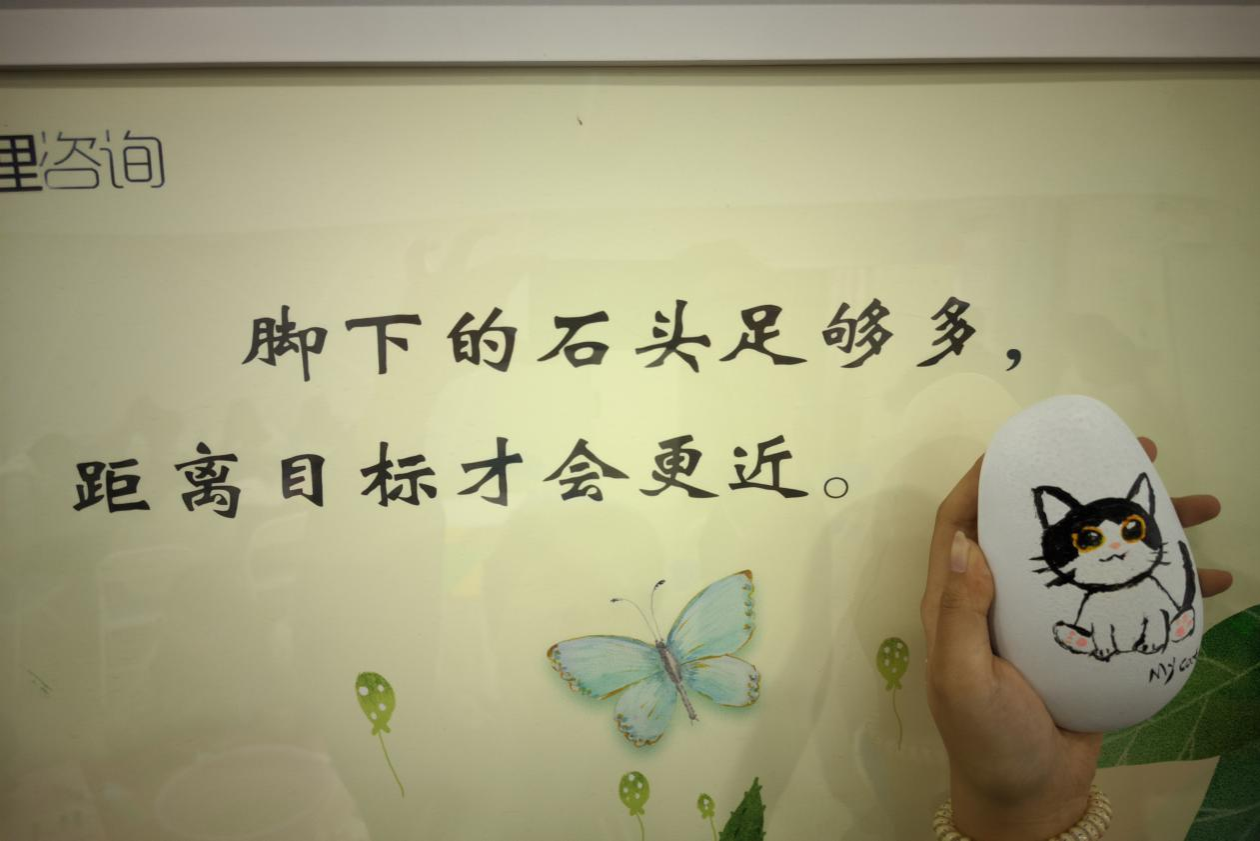 里咨询
脚下的石头足够多，
距离目标才会更近。
My cat